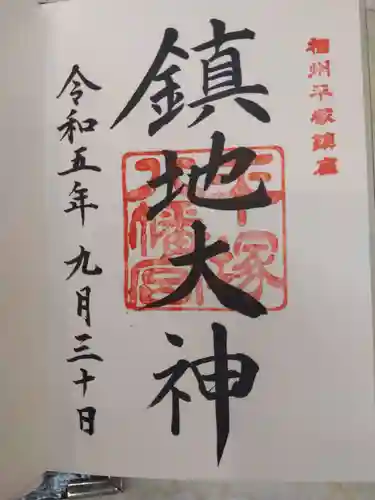 相州平塚鎮座
鎮地大神
平塚
八幡宮
令和五年九月三十日